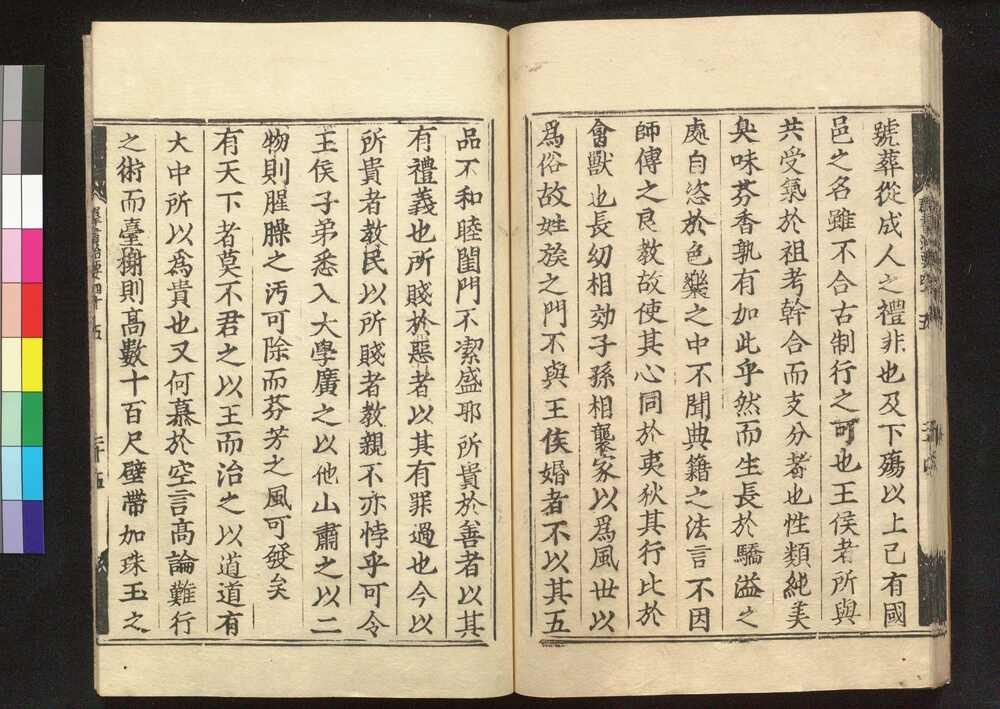 號葬從成人之禮非也及下殤以上已有國
邑之名雖不合古制行之可也王侯者所與
共受氣於祖考幹合而支分者也性類純美
臭味芬香孰有加此乎然而生長於驕溢之
處自恣於色樂之中不聞典籍之法言不因
師傅之良教故使其心同於夷狄其行比於
禽獸也長幼相効子孫相襲家以爲風世以
爲俗故姓族之門不與王侯婚者不以其五
品不和睦閨門不潔盛耶所貴於善者以其
有禮義也所賤於惡者以其有罪過也今以
所貴者教民以所賤者教親不亦悖乎可令
王侯子弟悉入大學廣之以他山肅之以二
物則腥臊之汚可除而芬芳之風可發矣
有天下者莫不君之以王而治之以道道有
大中所以爲貴也又何慕於空言高論難行
之術而臺榭則高數十百尺壁帶加珠玉之
群書治要四十五